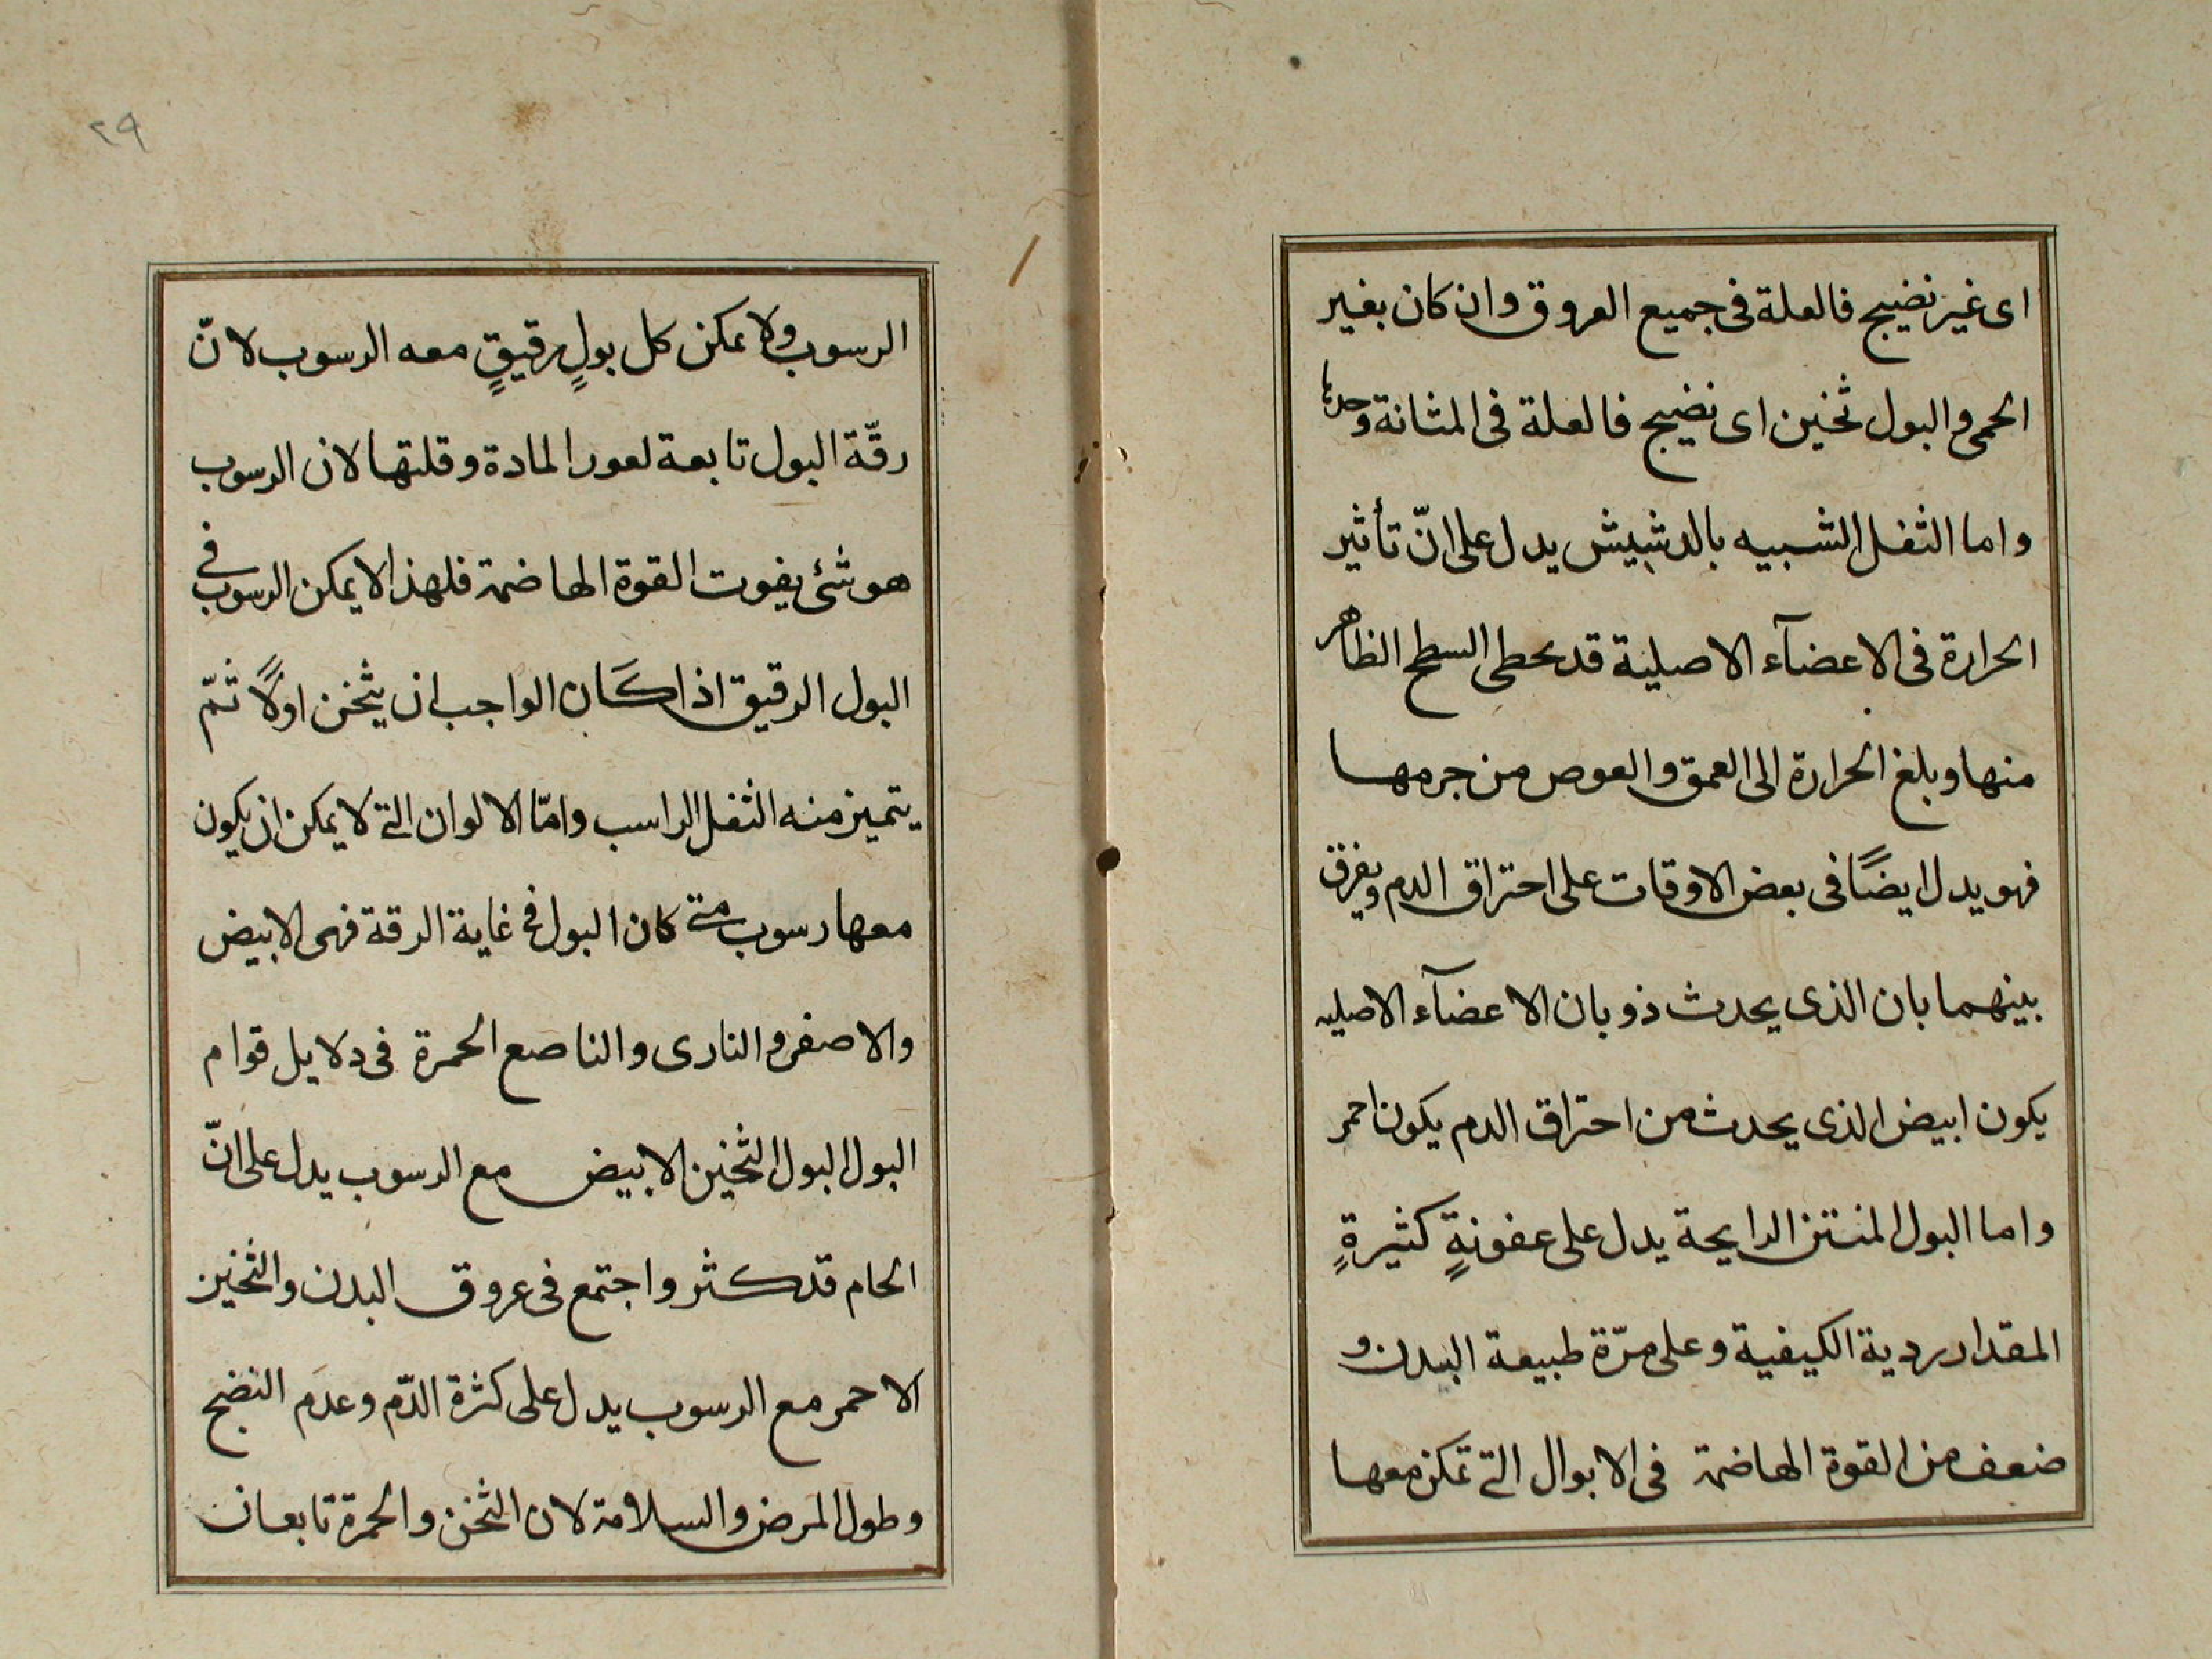 اى غير نضيج فالعلة فى جميع العروق وان كان بغير
الحمى والبول ثخين اى نضيج فالعلة فى المثانة وحدها
واما الثفل الشبيه بالدشيش يدل على انّ تأثير
الحرارة فى الاعضآء الاصلية قد يحطى السطح الظاهر
منها وبلغ الحرارة الى العمق والعوص من جرمها
فهو يدل ايضًا فى بعض الاوقات على احتراق الدم ويفرق
بينهما بان الذى يحدث ذوبان الاعضآء الاصليه
يكون ابيض الذى يحدث من احتراق الدم يكون احمر
واما البول المنتن الرايحة يدل على عفونةٍ كثيرةٍ
المقدار ردية الكيفية وعلى مرّة طبيعة البدن و
ضعف من القوة الهاضمة فى الابوال التى تمكن معها
٢٩
الرسوب ولا يمكن كل بولٍ رقيقٍ معه الرسوب لانّ
رقّة البول تابعة لعور المادة وقلتها لان الرسوب
هو شئ يفوت القوة الهاضمة فلهذا لا يمكن الرسوب فى
البول الرقيق اذا كَان الواجب ان يثخن اولًا ثمّ
يتميز منه الثفل الراسب وامّا الالوان التى لا يمكن ان يكون
معها رسوب متى كان البول فى غاية الرقة فهى الابيض
والاصفر والنارى والناصع الحمرة فى دلايل قوام
البول البول الثخين الابيض مع الرسوب يدل على انّ
الخام قد كثر واجتمع فى عروق البدن والثخين
الاحمر مع الرسوب يدل على كثرة الدّم وعدَم النضج
وطول المرض والسلامة لان الثخن والحمرة تابعان